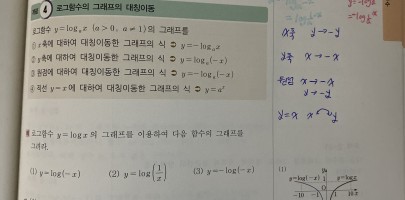 4 로그함수의 그래프의 대칭이동
로그함수 y=logₐx (a>0, a≠1)의 그래프를
① x축에 대하여 대칭이동한 그래프의 식 ➲ y=-logₐx
② y축에 대하여 대칭이동한 그래프의 식 ➲ y=logₐ(-x)
③ 원점에 대하여 대칭이동한 그래프의 식 ➲ y=-logₐ(-x)
④ 직선 y=x에 대하여 대칭이동한 그래프의 식 ➲ y=aˣ
로그함수 y=log x의 그래프를 이용하여 다음 함수의 그래프를
그려라.
(1) y=log(-x) (2) y=log(1/x) (3) y=-log(-x)
x축 y→-y
y축 x→-x
원점 x→-x
y→-y
y=x
(1)
y=log(-x) y y=log x
-10 -1 O 1 10 x